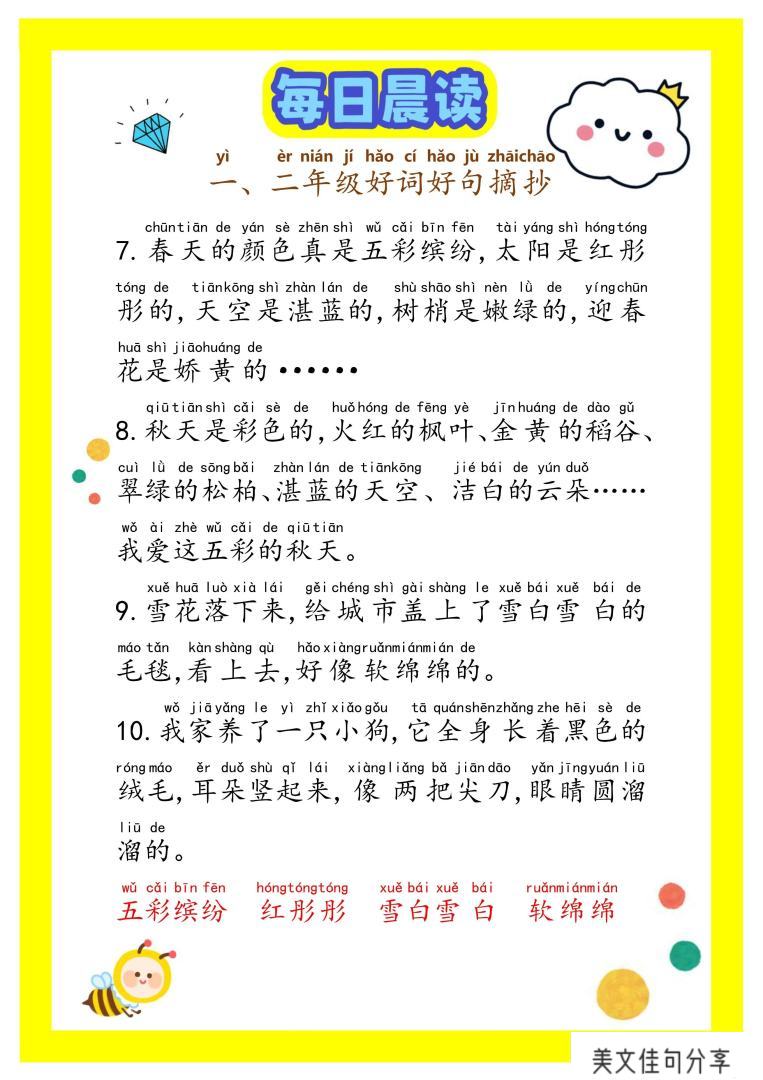 每日晨读
yì èr nián jí hǎo cí hǎo jù zhāichāo
一、二年级好词好句摘抄
chūntiān de yán sè zhēn shì wǔ cǎi bīn fēn tài yáng shì hóngtóng
7. 春天的颜色真是五彩缤纷,太阳是红彤
tóng de tiānkōng shì zhàn lán de shù shāo shì nèn lǜ de yíngchūn
彤的,天空是湛蓝的,树梢是嫩绿的,迎春
huā shì jiāohuáng de
花是娇黄的······
qiūtiān shì cǎi sè de huǒhóng de fēng yè jīnhuáng de dào gǔ
8. 秋天是彩色的,火红的枫叶、金黄的稻谷、
cuì lǜ de sōngbǎi zhàn lán de tiānkōng jié bái de yún duǒ
翠绿的松柏、湛蓝的天空、洁白的云朵······
wǒ ài zhè wǔ cǎi de qiūtiān
我爱这五彩的秋天。
xuě huā luò xià lái gěi chéng shì gài shàng le xuě bái xuě bái de
9. 雪花落下来,给城市盖上了雪白雪白的
máo tǎn kàn shàng qù hǎo xiàngruǎnmiánmián de
毛毯,看上去,好像软绵绵的。
wǒ jiā yǎng le yì zhǐ xiǎo gǒu tā quánshēnzhǎng zhe hēi sè de
10. 我家养了一只小狗,它全身长着黑色的
róng máo ěr duǒ shù qǐ lái xiàng liǎng bǎ jiān dāo yǎn jīng yuán liū
绒毛,耳朵竖起来,像两把尖刀,眼睛圆溜
liū de
溜的。
wǔ cǎi bīn fēn hóngtóngtóng xuě bái xuě bái ruǎnmiánmián
五彩缤纷 红彤彤 雪白雪白 软绵绵
美文佳句分享